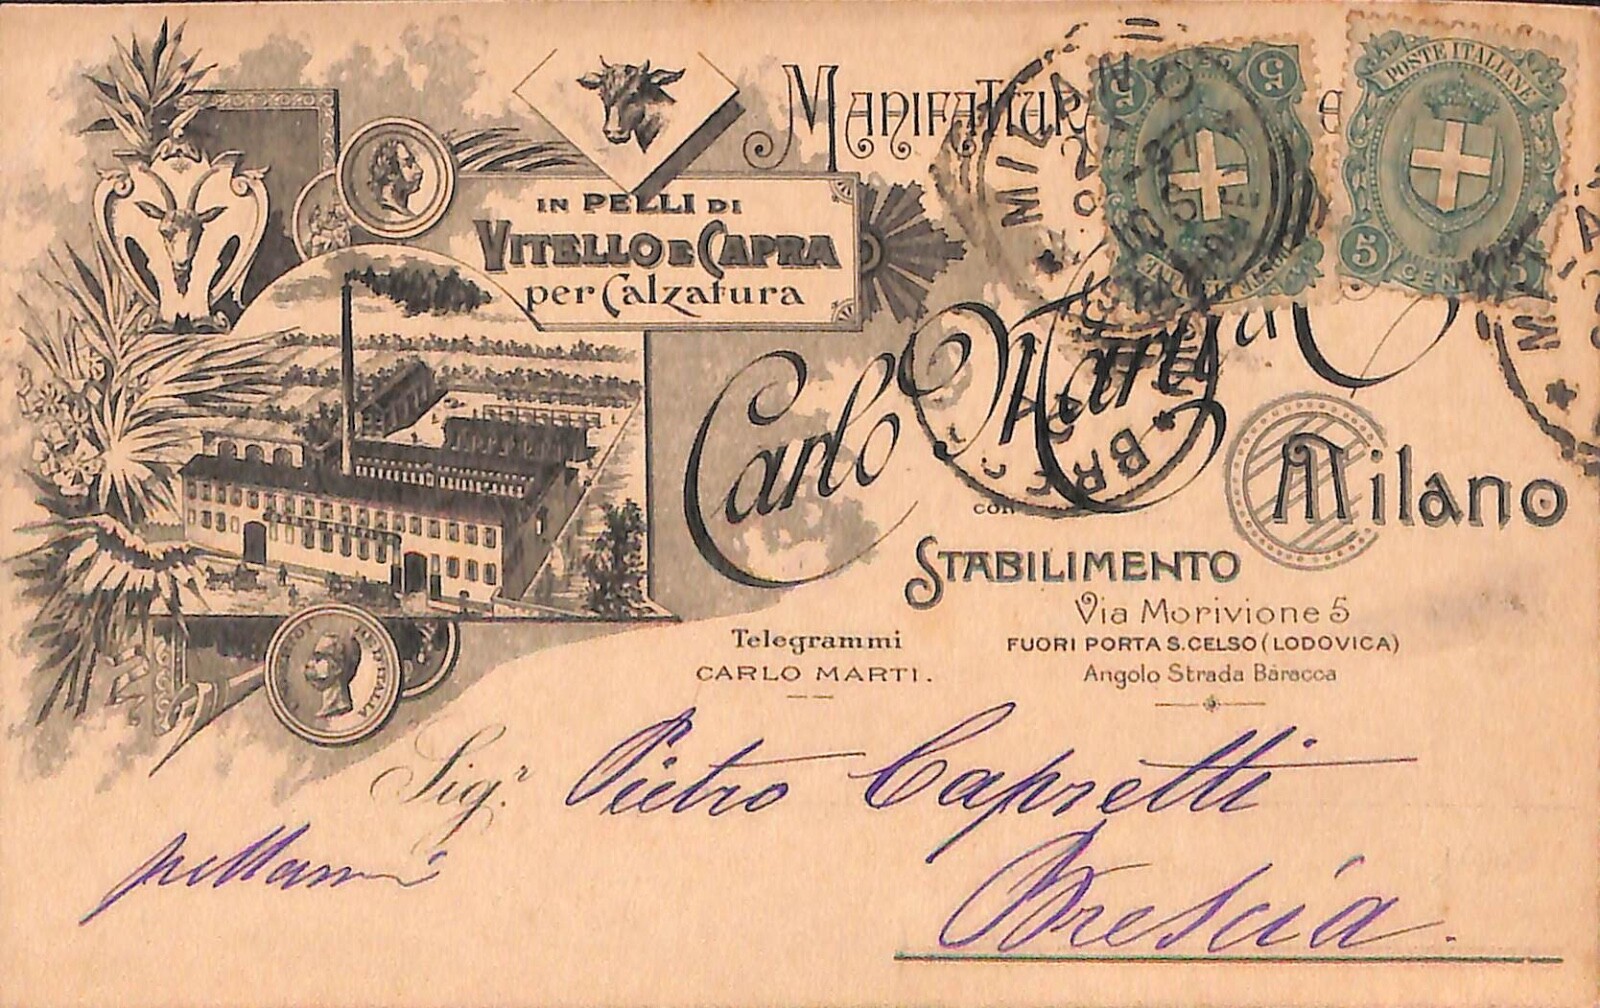 MANIFATTURA
IN PELLI DI
VITELLO E CAPRA
per Calzatura
POSTE ITALIANE
5 CENT 5
5 CENT 5
MILANO
MILANO
BRESCIA
Carlo
con
STABILIMENTO
Milano
Via Morivione 5
FUORI PORTA S. CELSO (LODOVICA)
Angolo Strada Baracca
Telegrammi
CARLO MARTI.
Sigr. Pietro Capretti
pellami
Brescia.